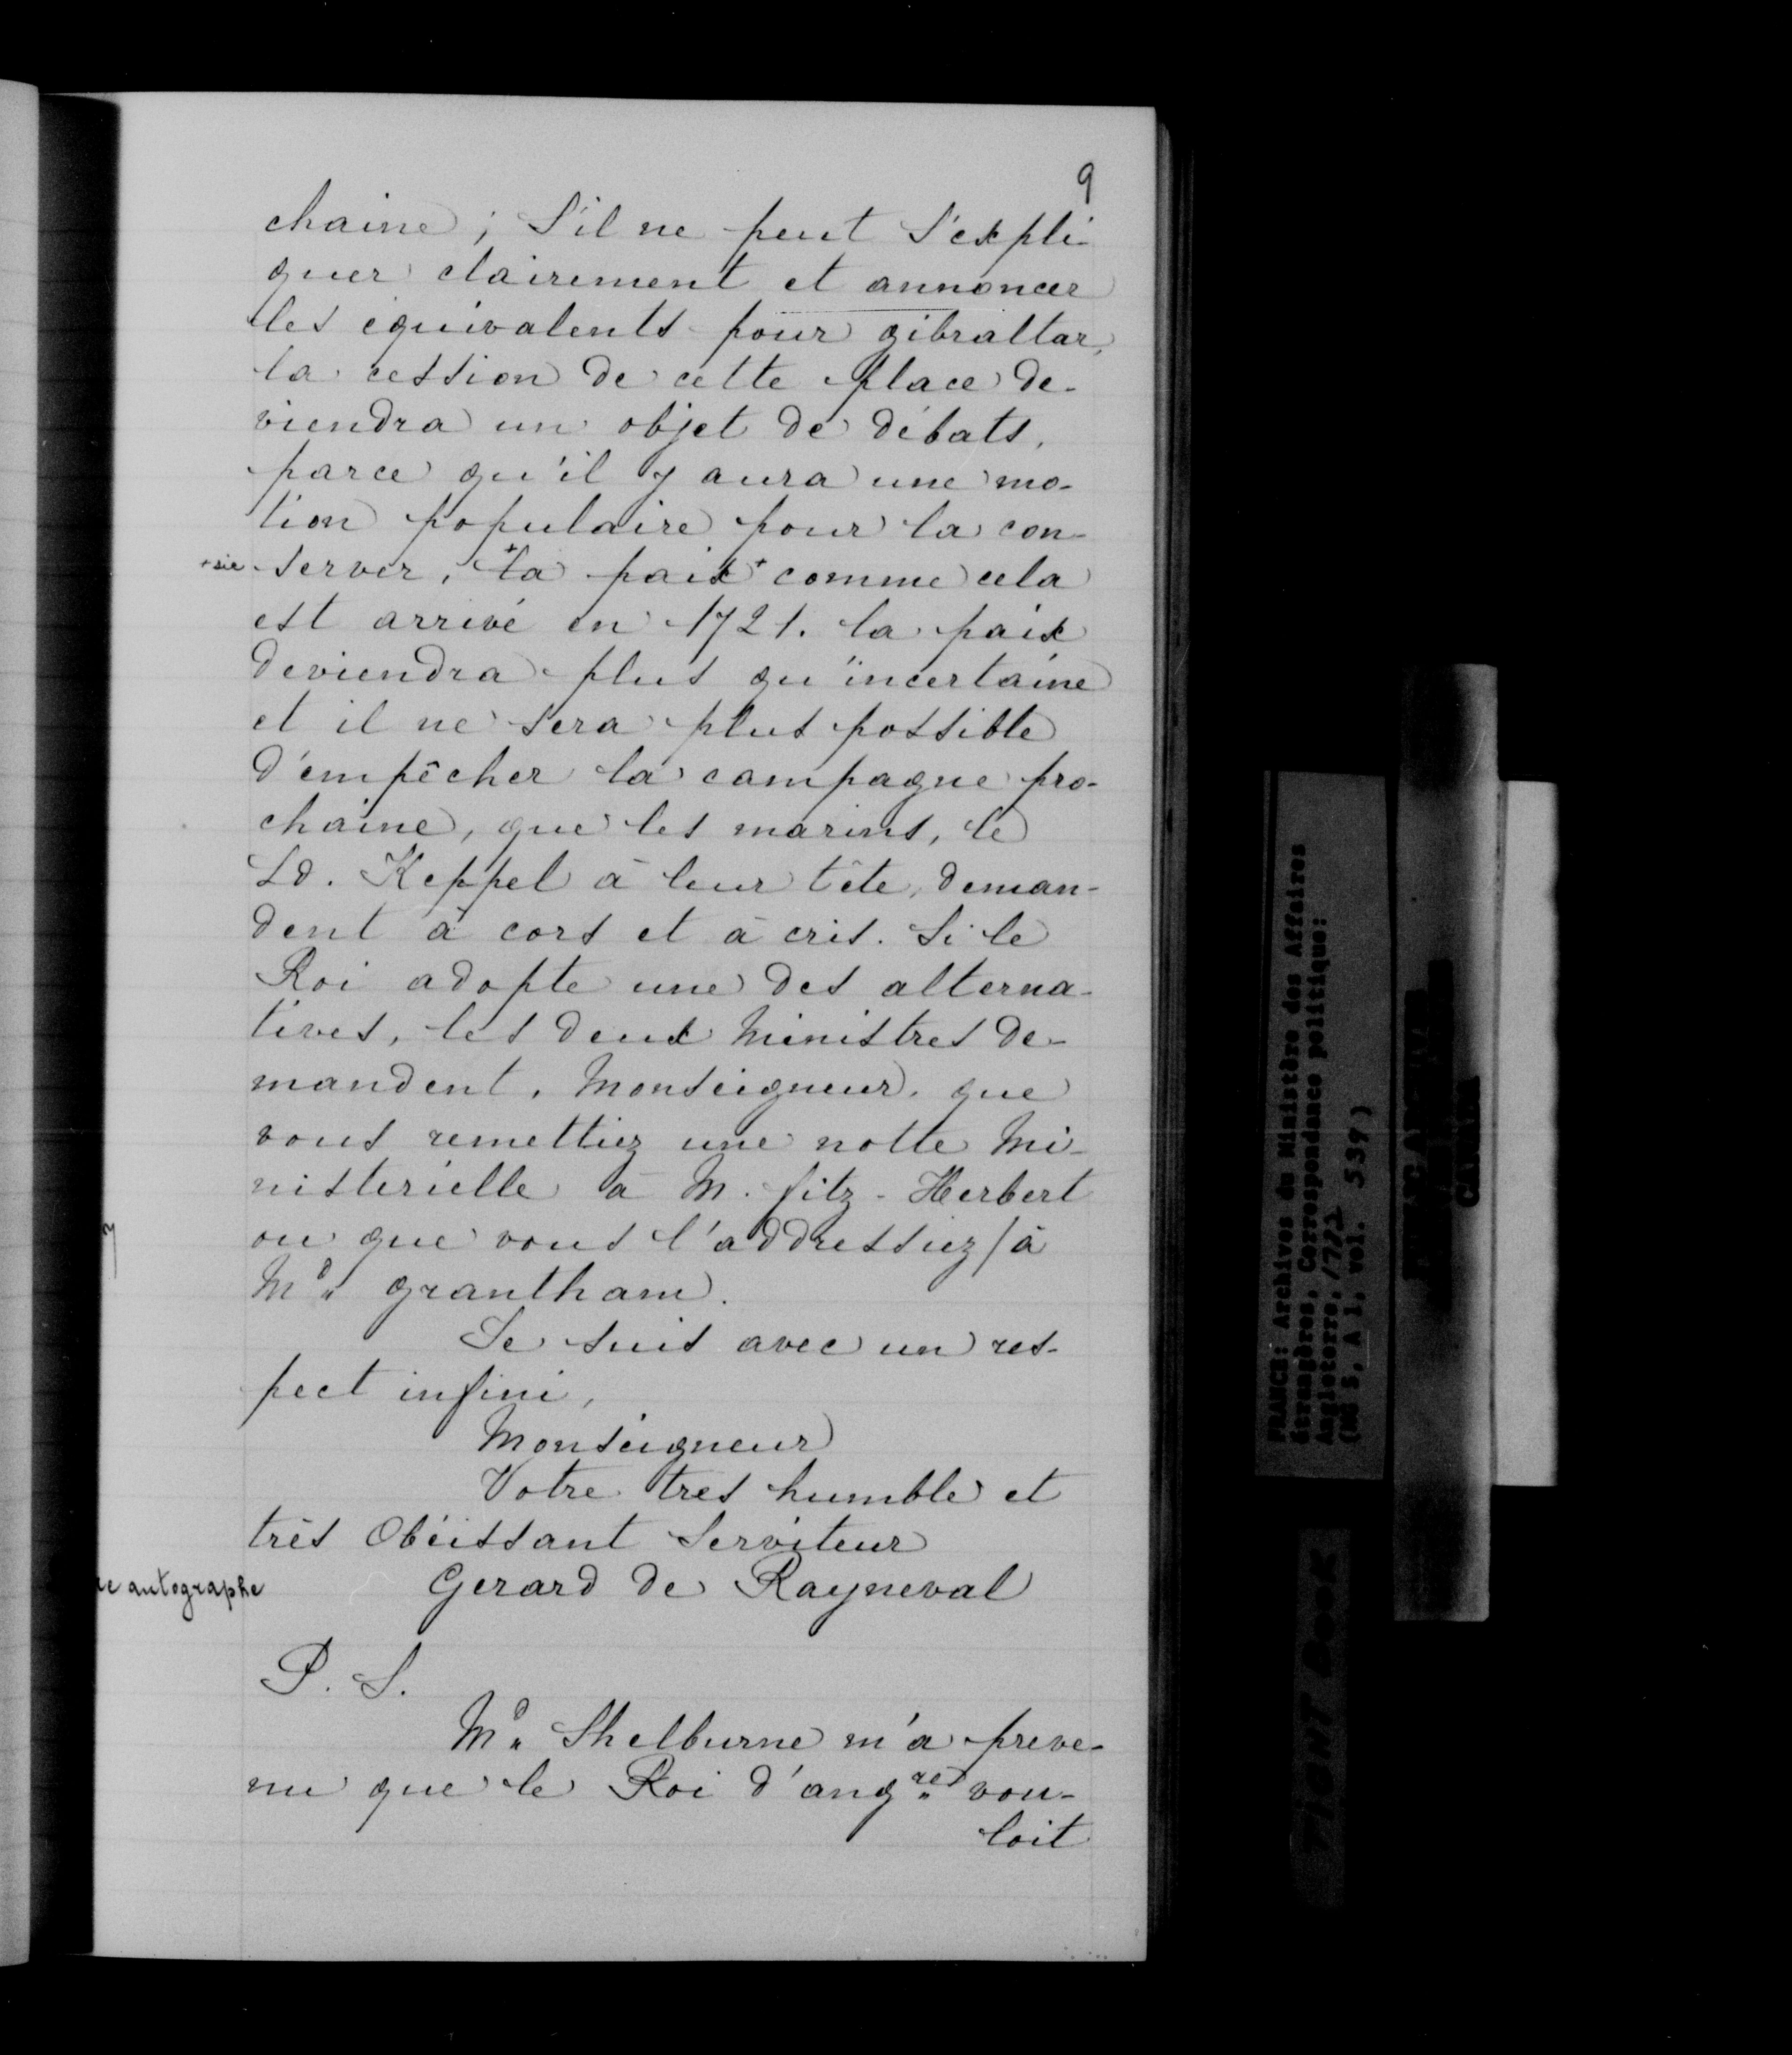 9
chaine; S'il ne peut S'expli-
quer clairement et annoncer
les équivalents pour gibraltar,
la cession de cette place de-
viendra un objet de débats,
parce qu'il y aura une mo-
tion populaire pour la con-
+sic server, +la paix+ comme cela
est arrivé en 1721. la paix
deviendra plus qu'incertaine
et il ne sera plus possible
d'empêcher la campagne pro-
chaine, que les marins, le
Ld. Keppel à leur tête, deman-
dent à cors et à cris. Si le
Roi adopte une des alterna-
tives, les deux Ministres de-
mandent, Monseigneur, que
vous remettiez une notte Mi-
nisterielle à M. fitz-Herbert
ou que vous l'addressiez à
Md grantham.
Je suis avec un res-
pect infini,
Monseigneur
Votre tres humble et
très Obéissant Serviteur
autographe Gerard de Rayneval
P. S.
Md Shelburne m'a preve-
nu que le Roi d'angre vou-
loit
FRANCE: Archives du Ministère des Affaires
étrangères, Correspondance politique:
Angleterre, 1782
(MG 5, A 1, vol. 539)